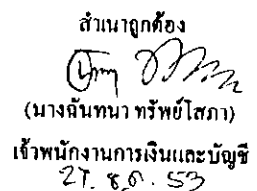 สำเนาถูกต้อง
(นางฉันทนา ทรัพย์โสภา)
เจ้าพนักงานการเงินและบัญชี
27. ธ.ค. 53